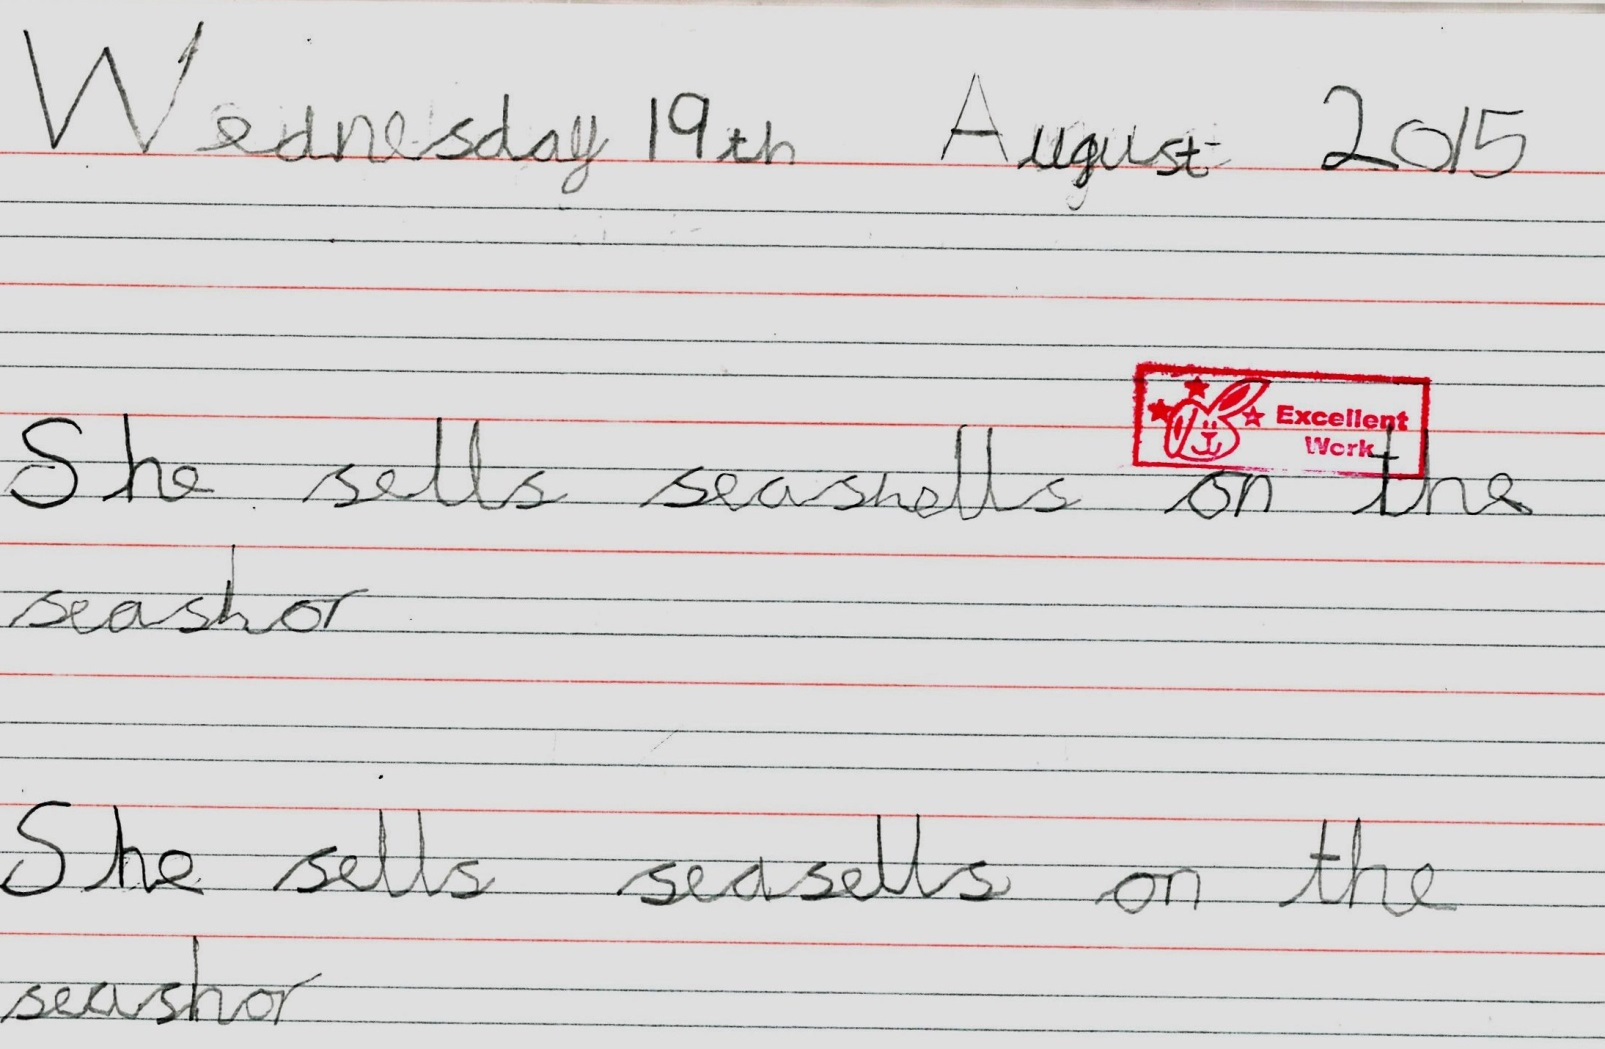 Wednesday 19th August 2015
Excellent
Work
She sells seashells on the
seashor
She sells seasells on the
seashor